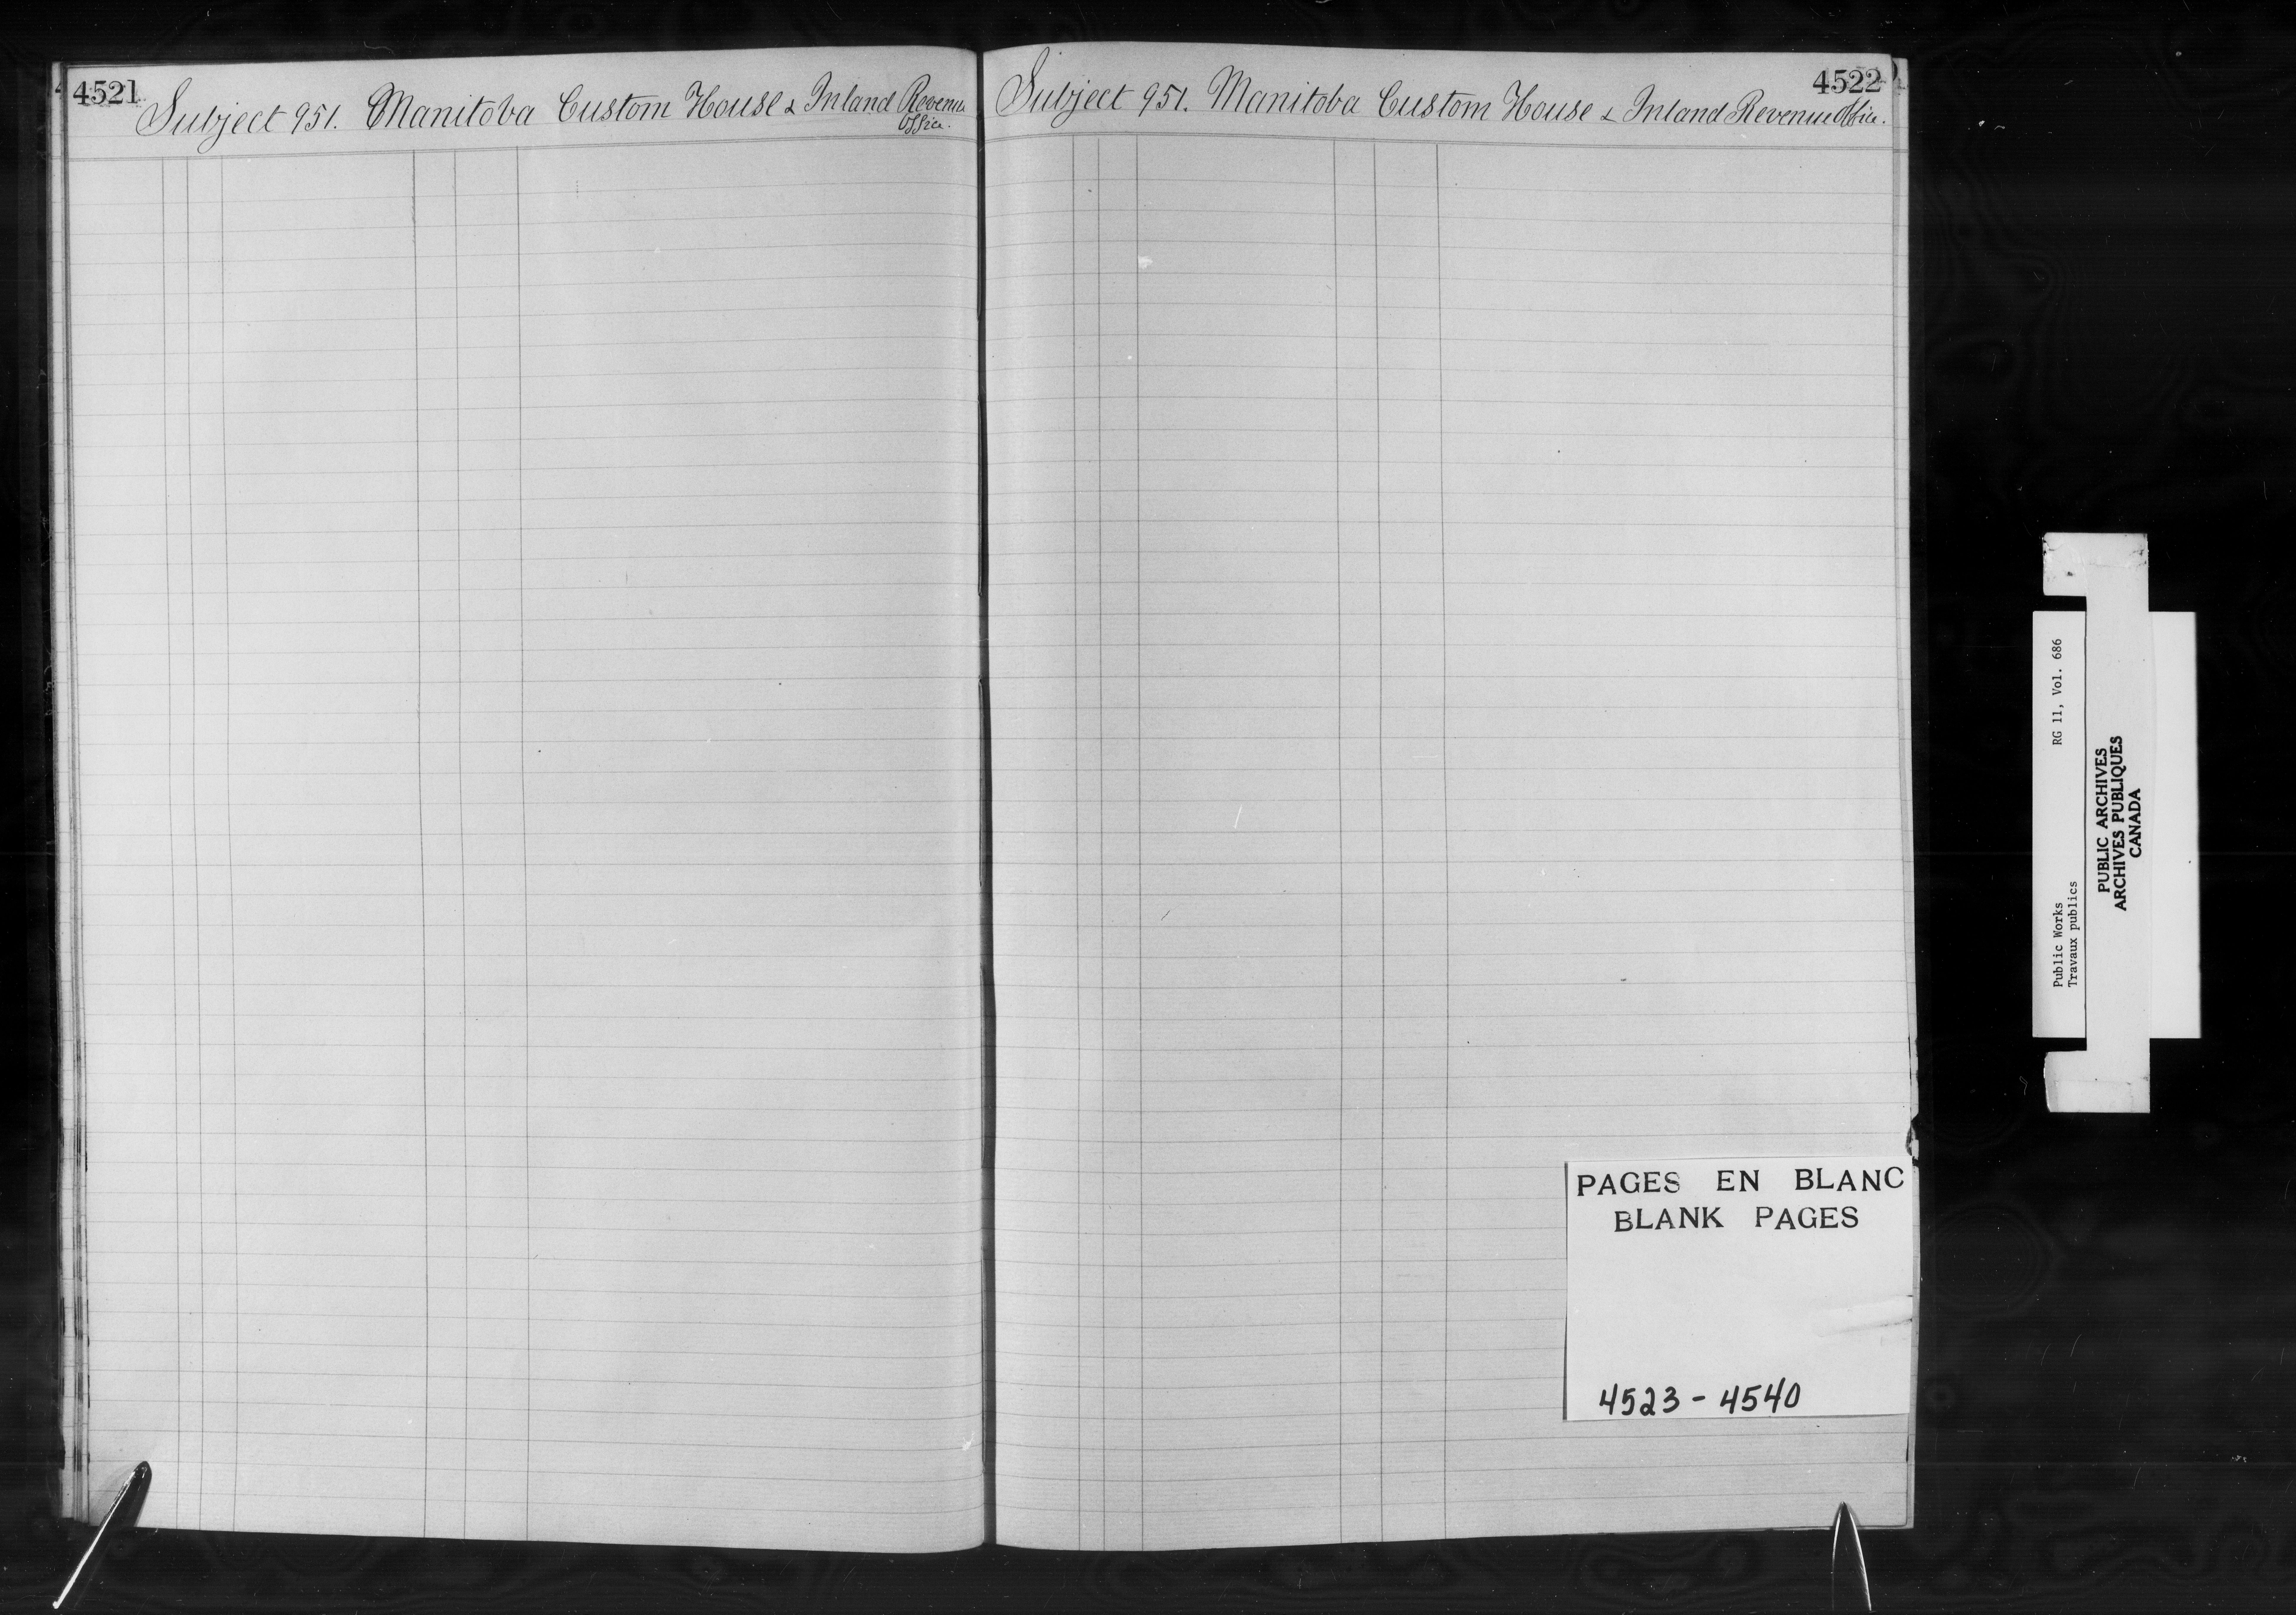 4521
Subject 951. Manitoba Custom House & Inland Revenue
Office.
4522
Subject 951. Manitoba Custom House & Inland Revenue Office.
PAGES EN BLANC
BLANK PAGES
4523 - 4540
Public Works RG 11, Vol. 686
Travaux publics
PUBLIC ARCHIVES
ARCHIVES PUBLIQUES
CANADA